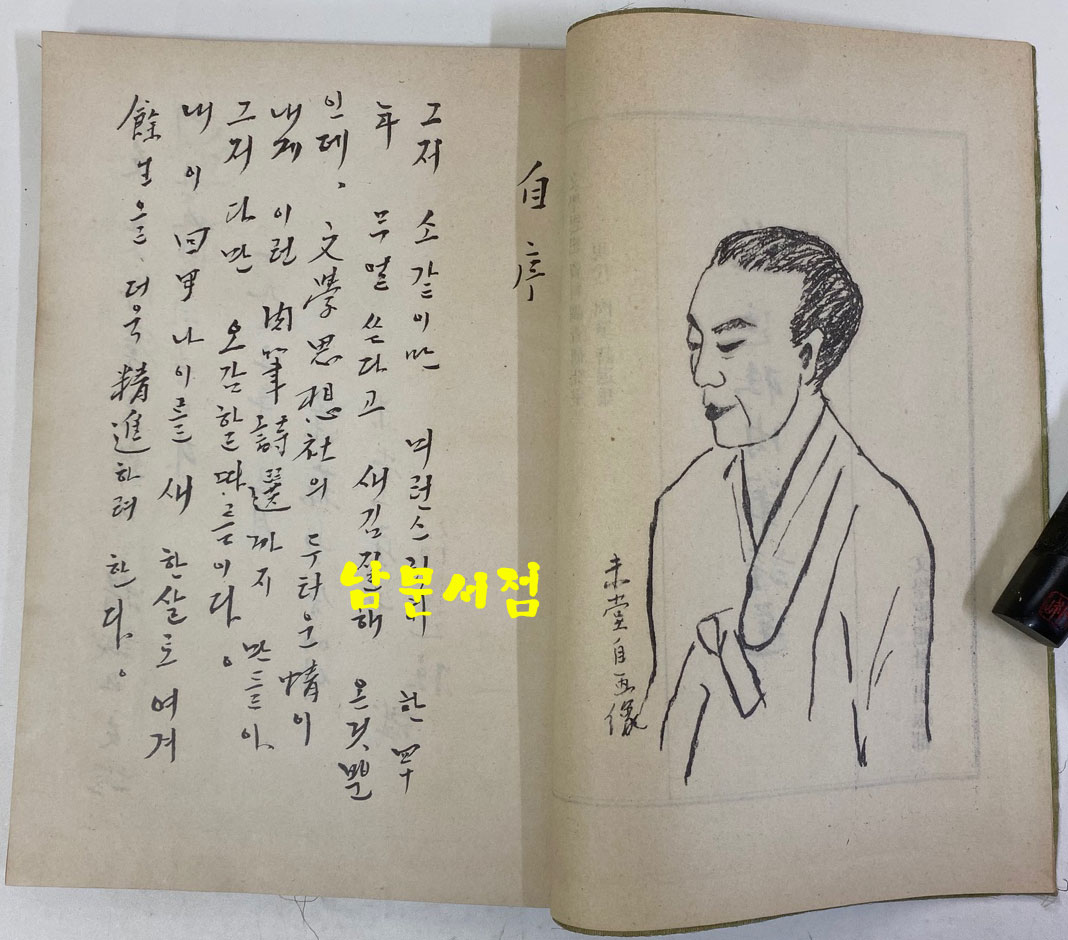 未堂自画像
自序
그저 소같이만 미련스리 한 四十
年 무얼 쓰다고 새김질해 온것뿐
인데、文學思想社의 두터운 情이
내게 이런 肉筆詩選까지 만들어、
그저 다만 오감할 따름이다。
내 이 回甲 나이를 새 한살로 여겨
餘生을、더욱 精進하려 한다。
남문서점